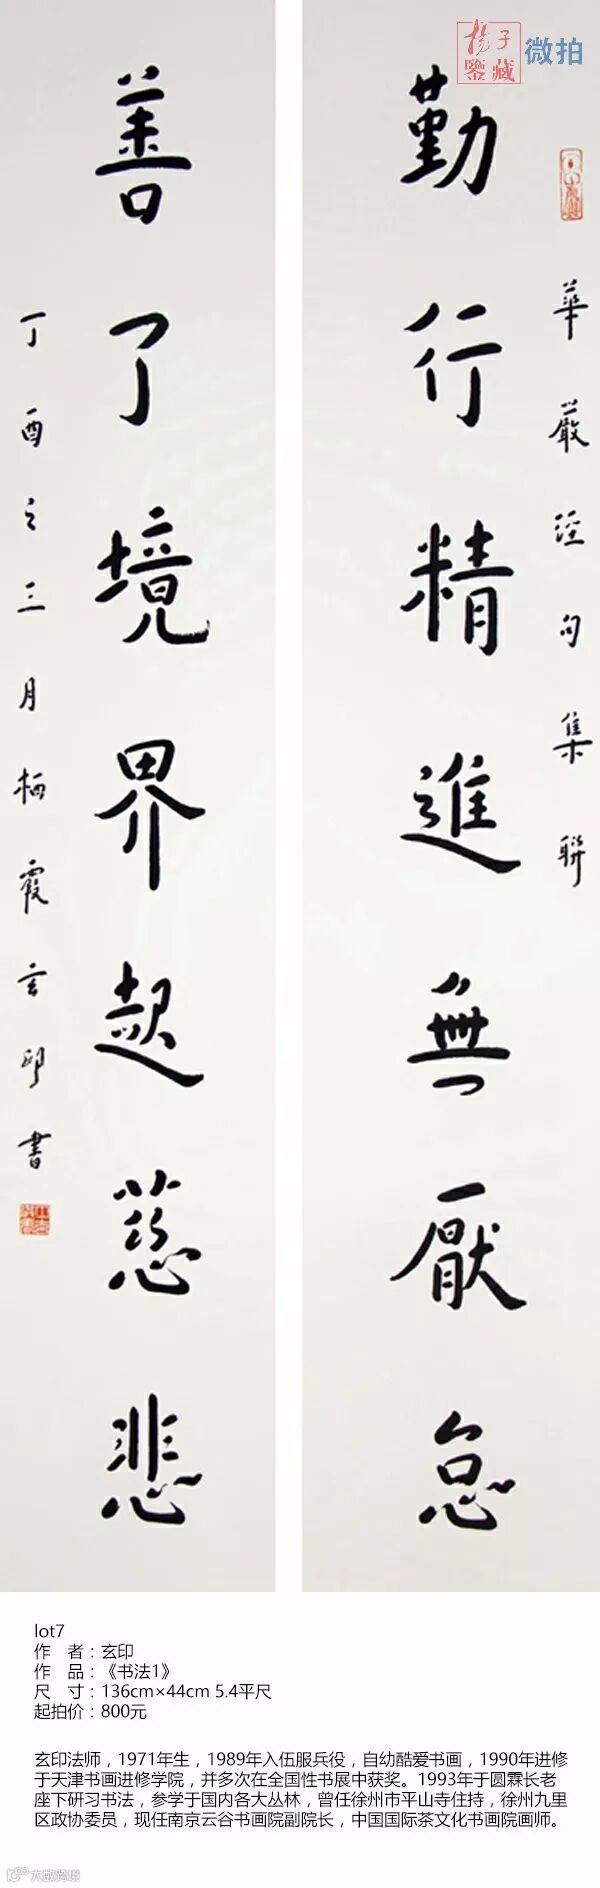 杨子
鉴藏
微拍
華嚴経句集聯
勤行精進無厭怠
善了境界起慈悲
丁酉之三月栖霞玄印書
lot7
作　者：玄印
作　品：《书法1》
尺　寸：136cm×44cm 5.4平尺
起拍价：800元
玄印法师，1971年生，1989年入伍服兵役，自幼酷爱书画，1990年进修
于天津书画进修学院，并多次在全国性书展中获奖。1993年于圆霖长老
座下研习书法，参学于国内各大丛林，曾任徐州市平山寺住持，徐州九里
区政协委员，现任南京云谷书画院副院长，中国国际茶文化书画院画师。
大数跨境